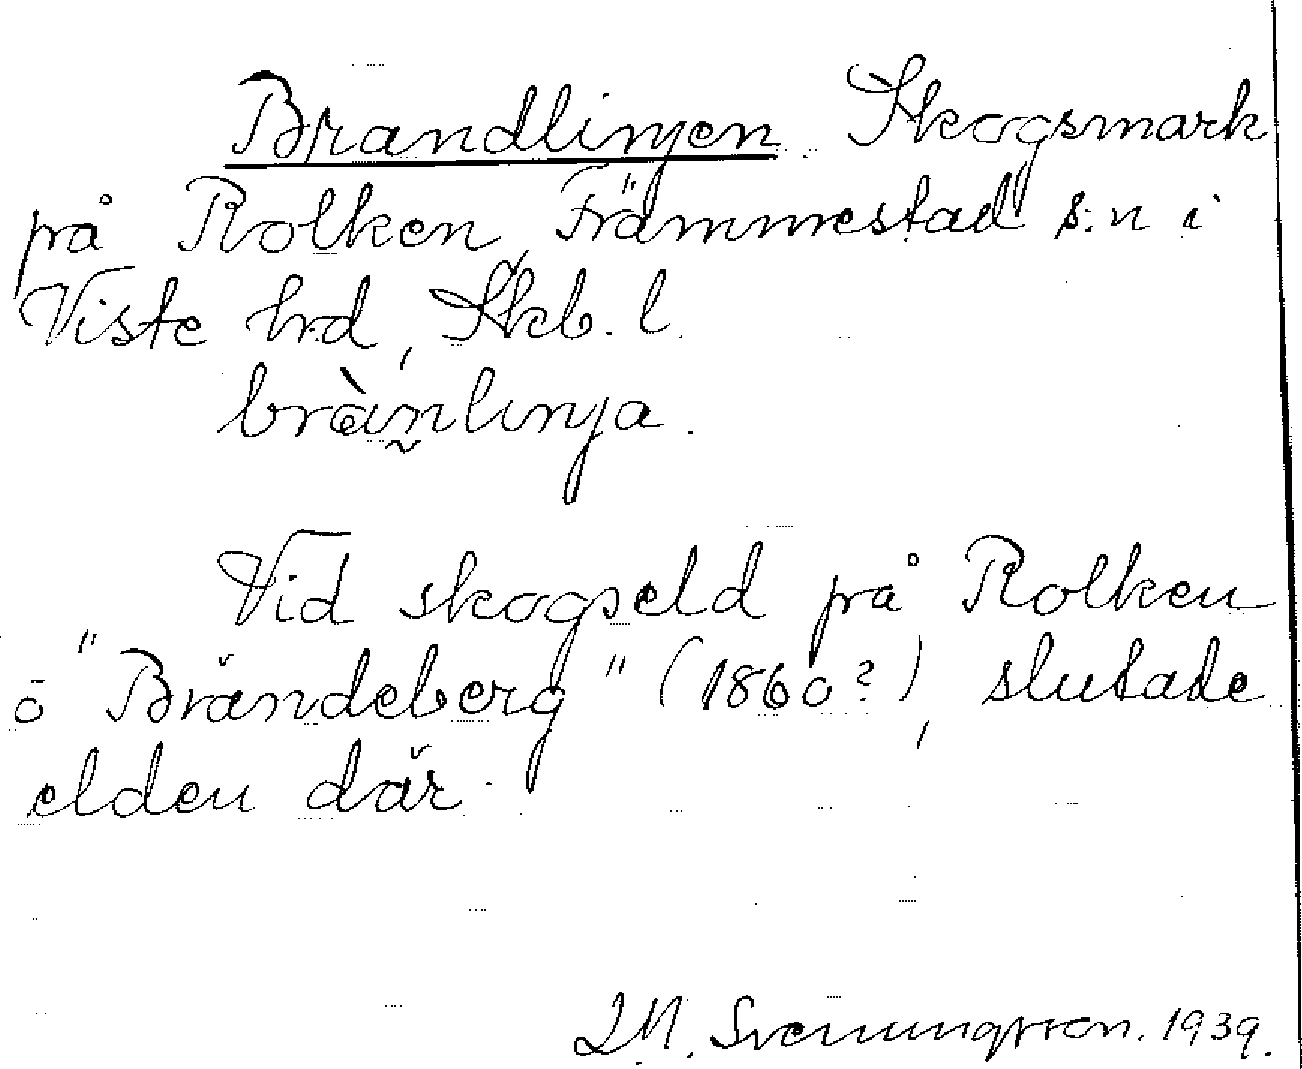 Brandlinjen. Skogsmark
på Rolken, Främmestad s:n i
Viste hrd, Skb. l.
bràn̰linja.
Vid skogseld på Rolken
ö "Brändeberg" (1860?), slutade
elden där.
Sveningsson. 1939.